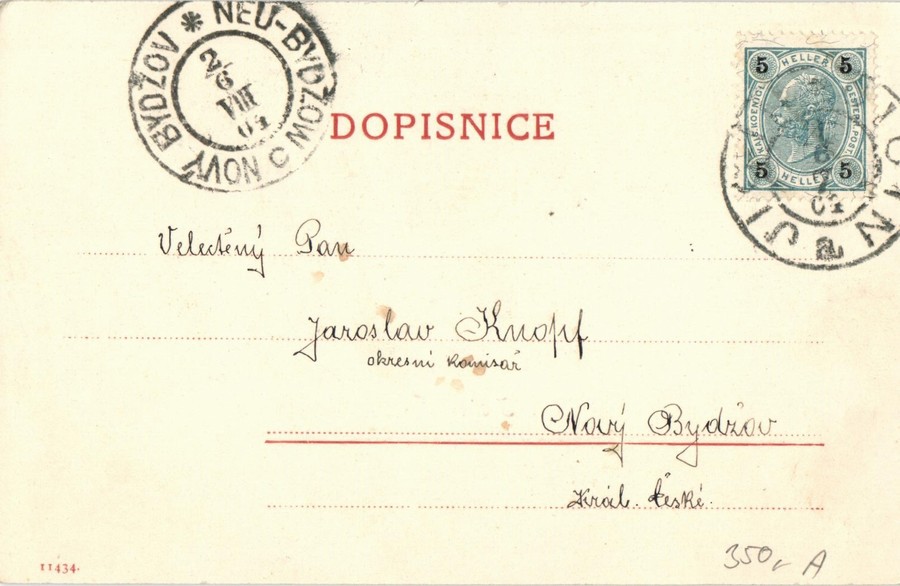 NOVÝ BYDŽOV * NEU-BYDŽOW C
2/8
VIII
04
DOPISNICE
5 HELLER 5
KAIS. KOENIGL. OESTERR. POST.
5 HELLER 5
04
a
Velectěný Pan
Jaroslav Knopf
okresní komisař
Nový Bydžov
Král. České.
11434.
350,- A